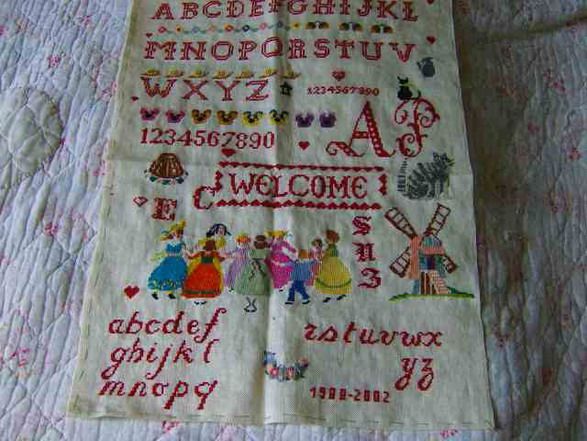 ABCDEFGHIJKL
MNOPQRSTUV
WXYZ 1234567890
1234567890 AP
WELCOME
E C
S
abcdef
ghijkl
mnopq
rstuvwx
yz